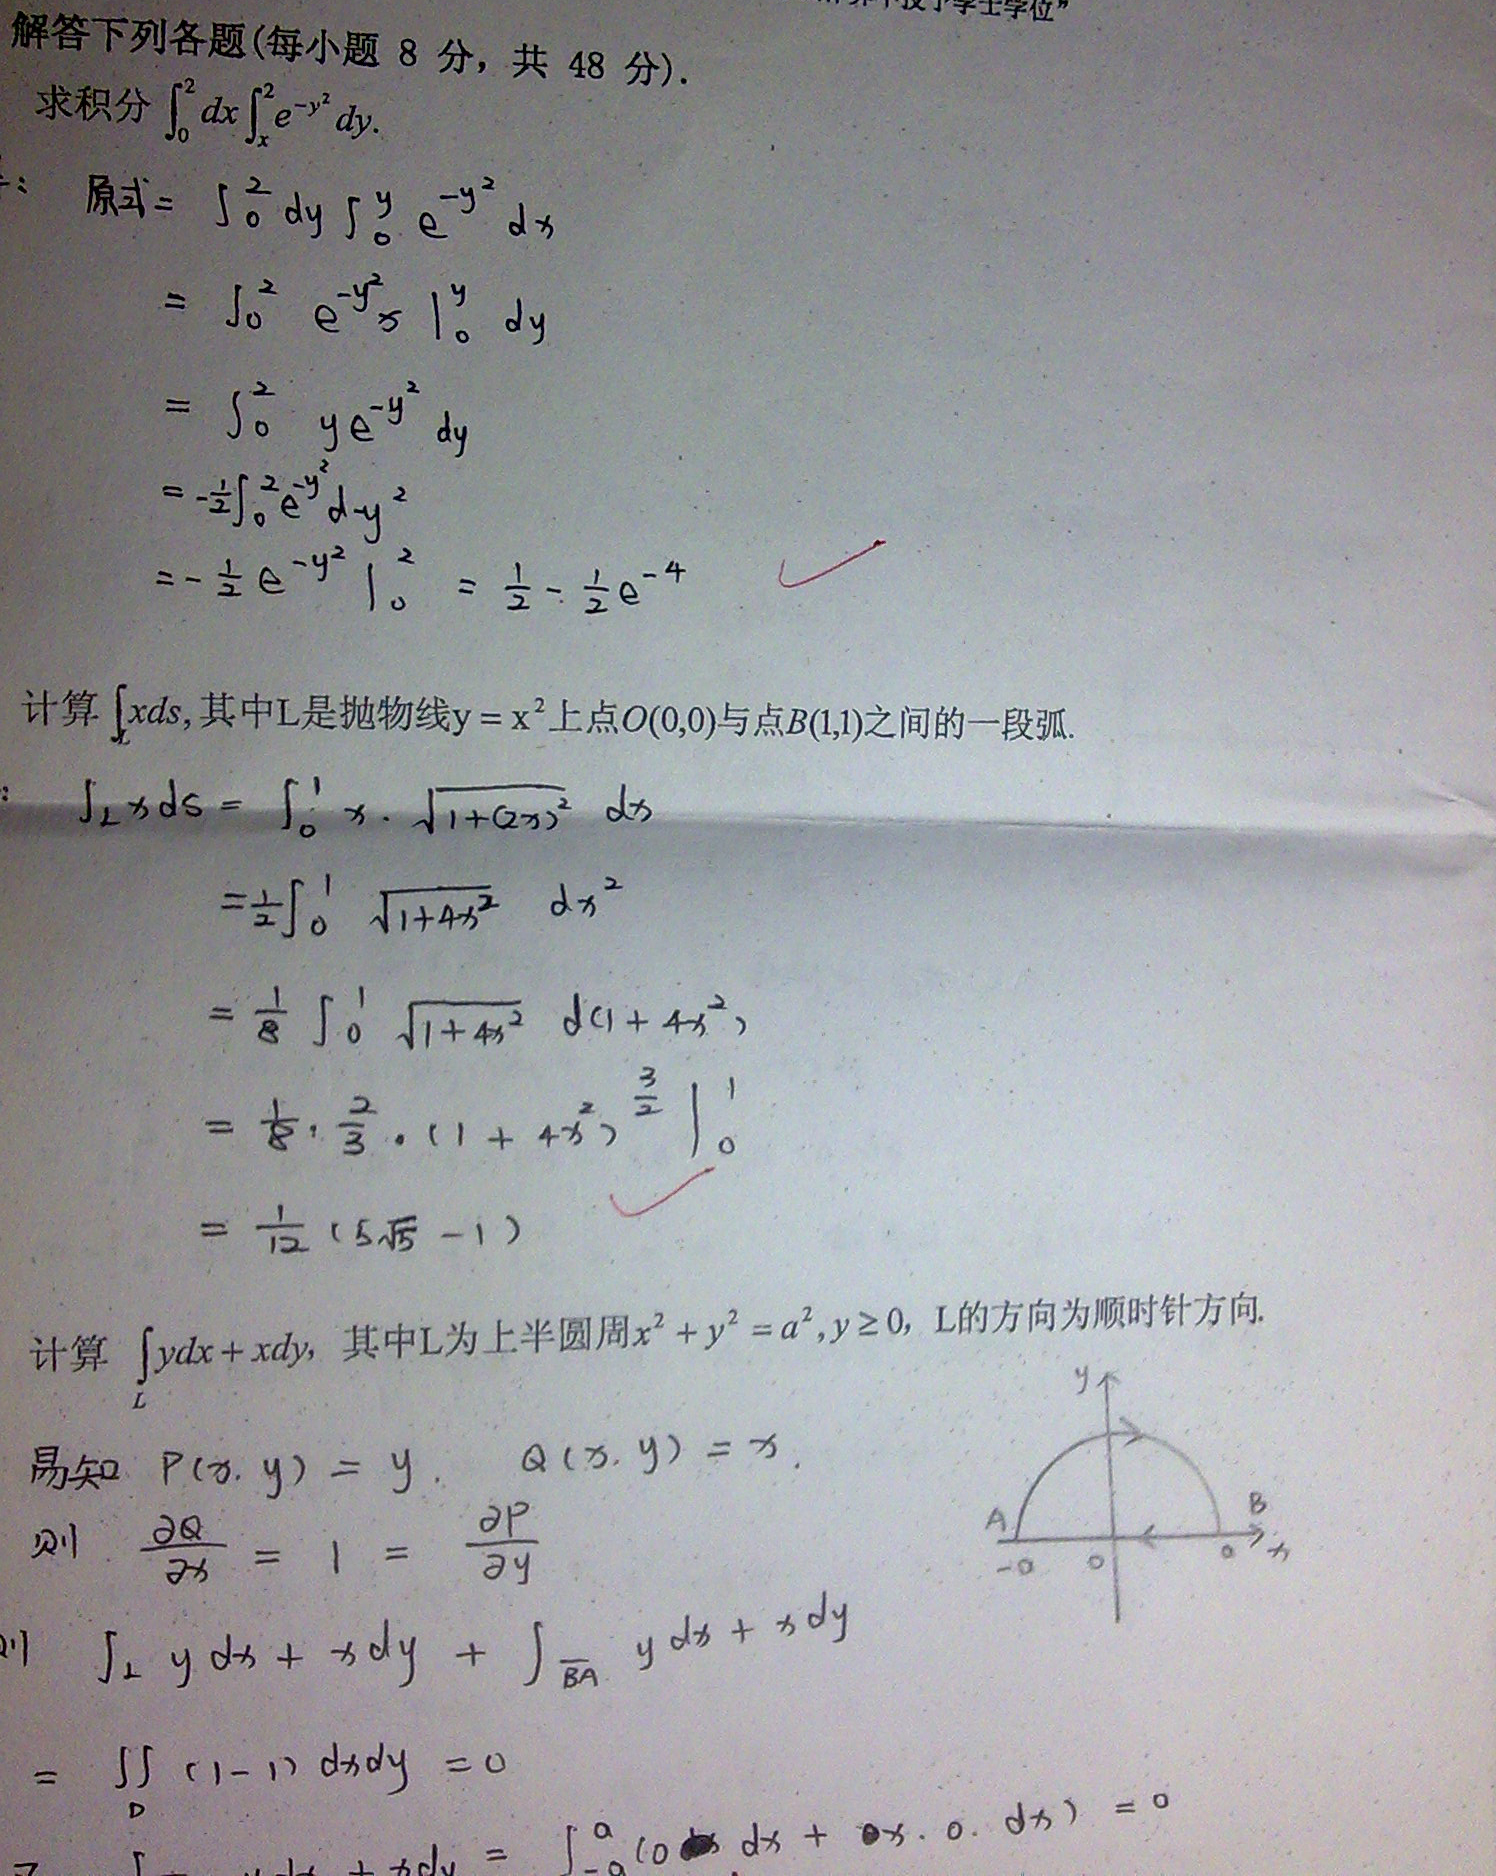 士学位”
解答下列各题(每小题 8 分, 共 48 分).
求积分 ∫₀² dx ∫ₓ² e^{-y²} dy.
原式 = ∫₀² dy ∫₀^y e^{-y²} dx
= ∫₀² e^{-y²} x |₀^y dy
= ∫₀² y e^{-y²} dy
= -1/2 ∫₀² e^{-y²} d-y²
= -1/2 e^{-y²} |₀² = 1/2 - 1/2 e^{-4}
计算 ∫_L xds, 其中L是抛物线y = x²上点O(0,0)与点B(1,1)之间的一段弧.
∫_L x ds = ∫₀¹ x · √(1+(2x)²) dx
= 1/2 ∫₀¹ √(1+4x²) dx²
= 1/8 ∫₀¹ √(1+4x²) d(1+4x²)
= 1/8 · 2/3 · (1+4x²)^{3/2} |₀¹
= 1/12 (5√5 - 1)
计算 ∫_L ydx + xdy, 其中L为上半圆周x² + y² = a², y ≥ 0, L的方向为顺时针方向.
y
易知 P(x.y) = y. Q(x.y) = x.
A B
则 ∂Q/∂x = 1 = ∂P/∂y
-a 0 a x
则 ∫_L y dx + x dy + ∫_{BA} y dx + x dy
= ∬_D (1-1) dxdy = 0
ydx + xdy = ∫_{-a}^a (0 dx + x·0·dx) = 0